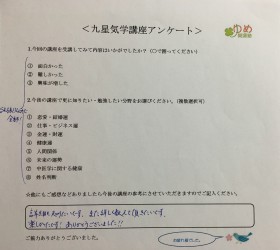 ＜九星気学講座アンケート＞
1.今回の講座を受講してみて内容はいかがでしたか？（〇で囲ってください）
① 面白かった
② 難しかった
③ 興味が増した
2.今回の講座で更に知りたい・勉強したい分野をお選びください。（複数選択可）
① 恋愛・結婚運
② 仕事・ビジネス運
③ 金運・財運
④ 健康運
⑤ 人間関係
⑥ 未来の運勢
⑦ 中医学に関する健康
⑧ 姓名判断
☆他にもご感想などありましたら今後の講座の参考にさせていただきますのでご記入ください。
また詳しく教えて頂きたいです。
楽しかったです！ありがとうございました！！
ご協力ありがとうございました。